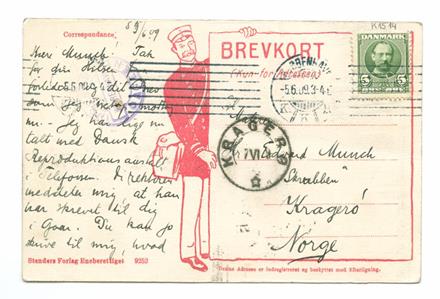 K1514
5/6/09
Correspondance.
BREVKORT
(Kun for Adressen)
DANMARK
5
5.6.09.3-4E
Kære Munch! Tak
for din Hilsen
mu. - Jeg har lige nu
talt med Dansk
Reproduktionsanstalt
Telefonen. Direktøren
meddeler mig, at han
har skrevet til dig
i Gaar. Du kan jo
skrive til mig, hvad
KRAGERØ
7 VI
Edvard Munch
"Skrubben"
Kragerø
Norge
Standers Forlag Eneberettiget 9253
Denne Adresse er indregistreret og beskyttet mod Efterligning.